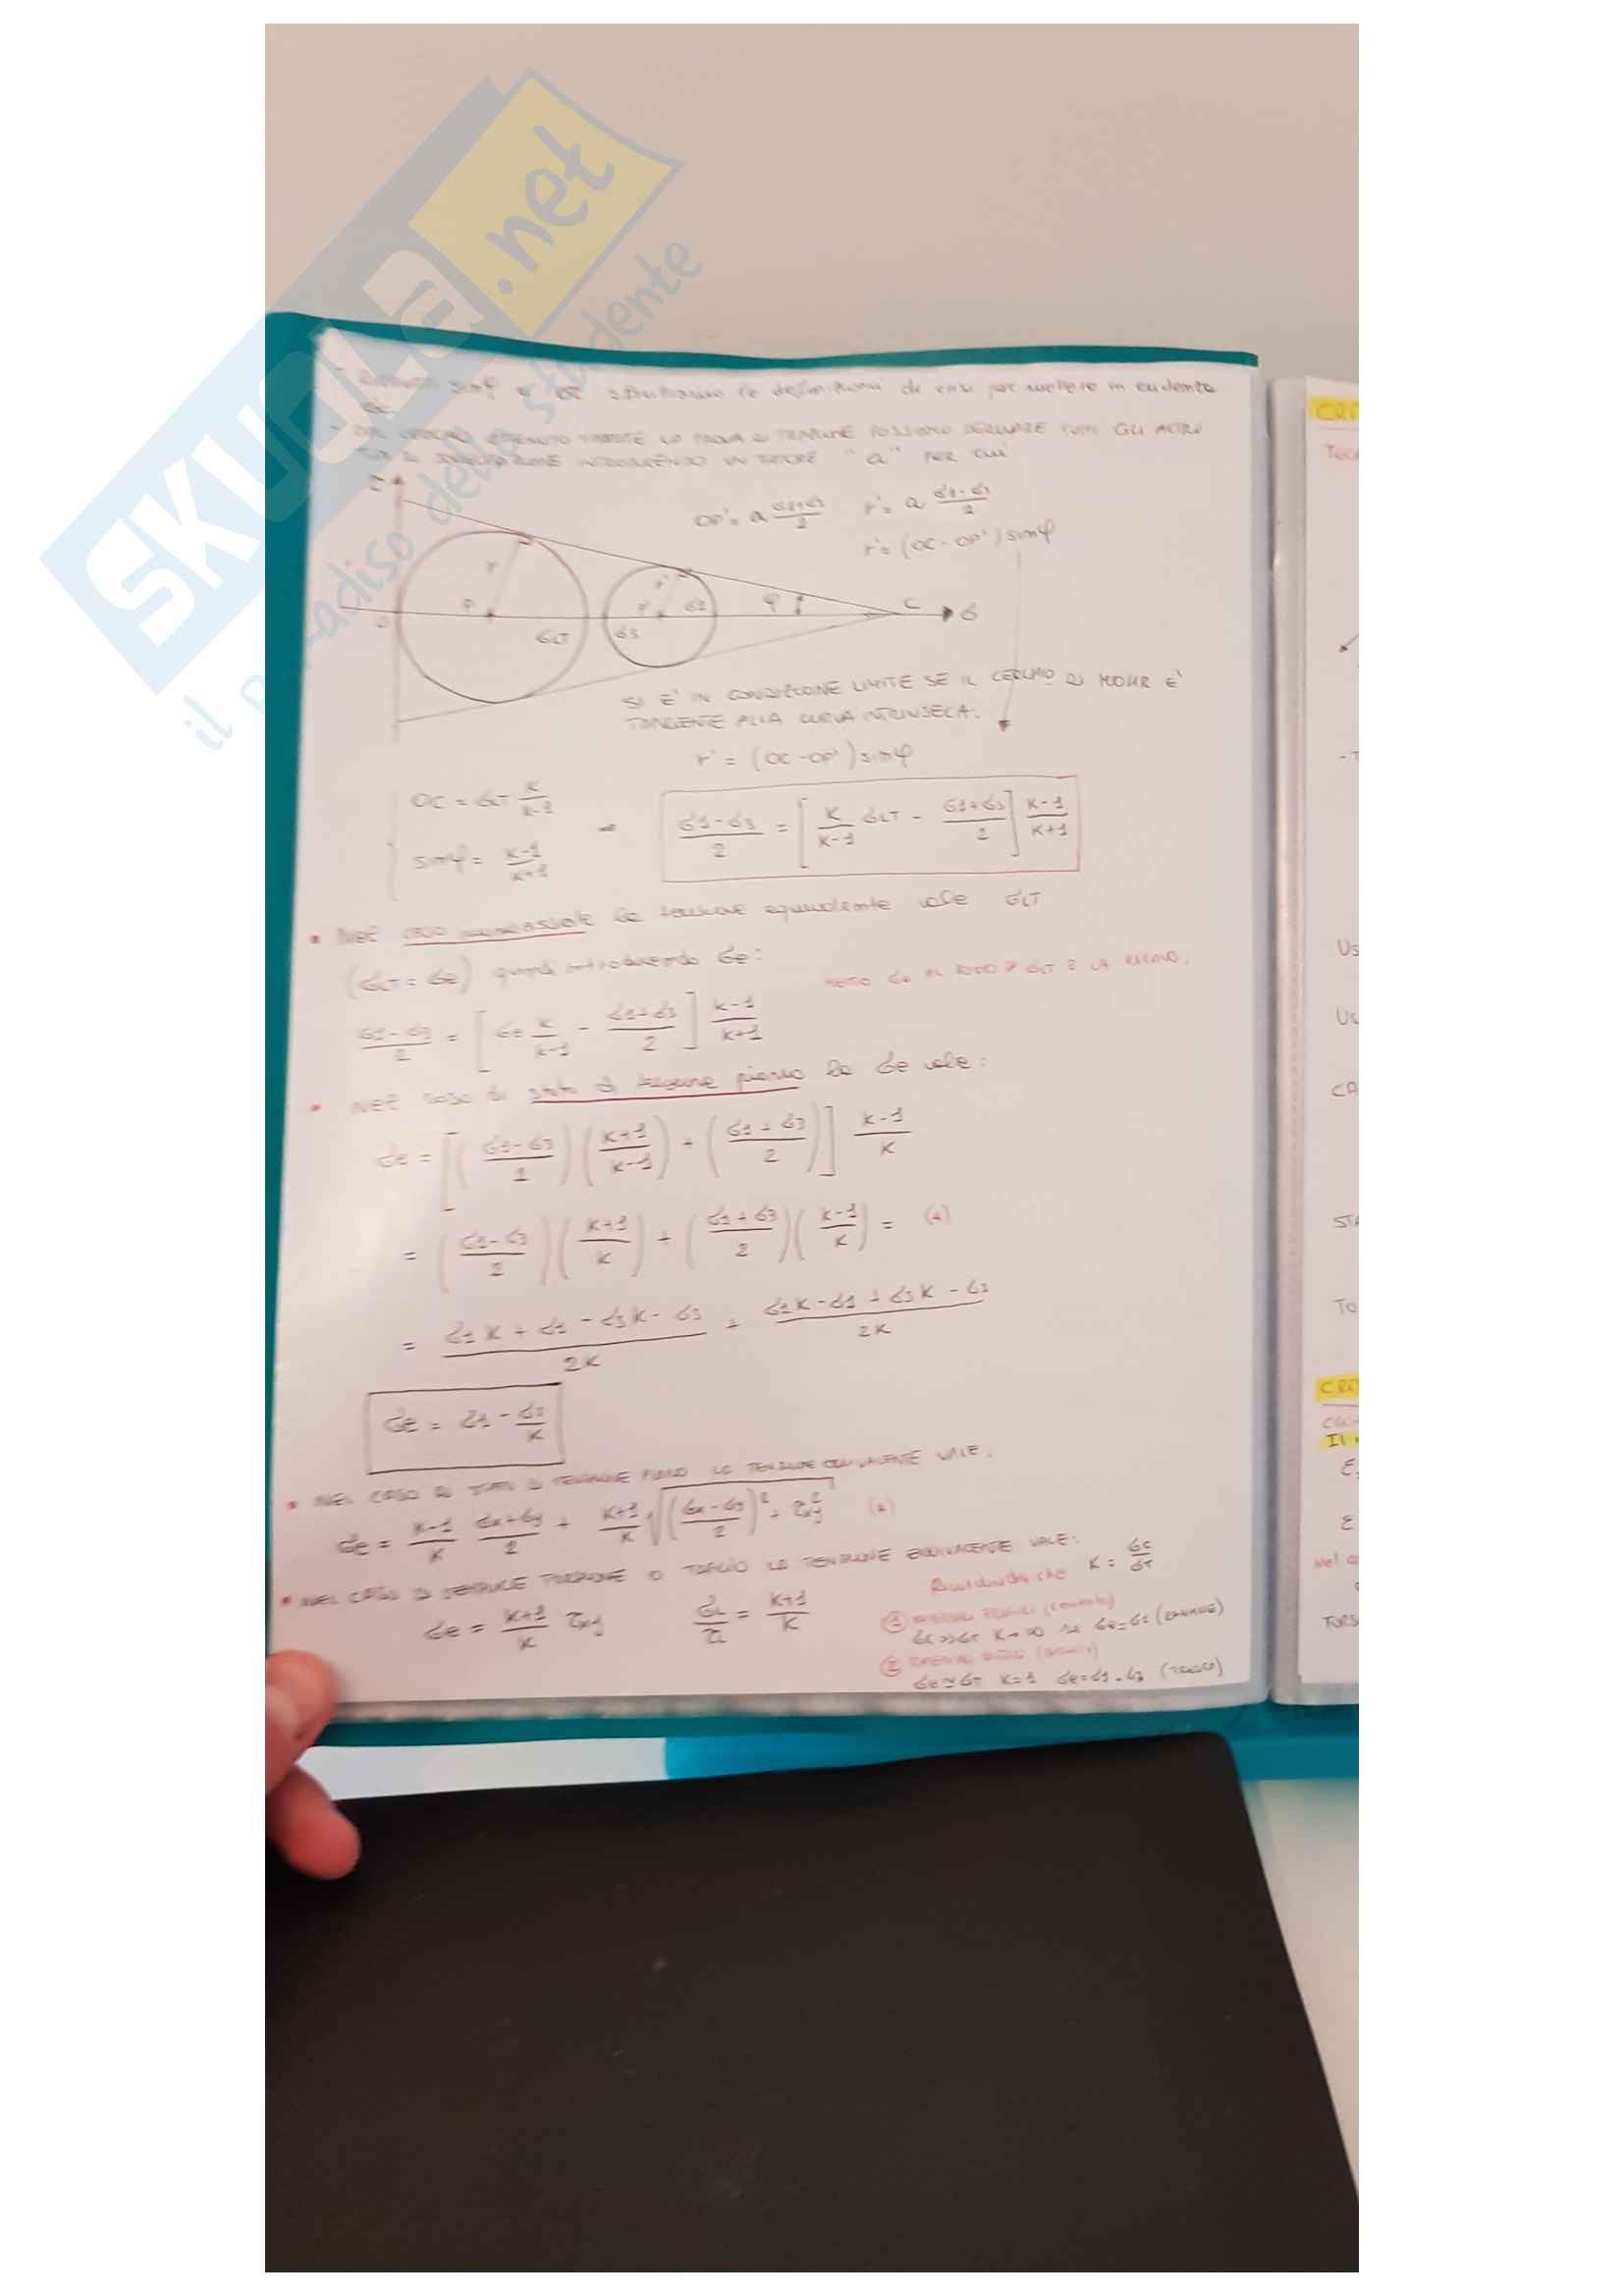 SKUOLA.net
il paradiso dello studente
sinφ e OC sostituiamo le definizioni di essi per mettere in evidenza
σe
- DAL CERCHIO OTTENUTO TRAMITE LA PROVA DI TRAZIONE POSSIAMO DISEGNARE TUTTI GLI ALTRI
TIPI DI SOLLECITAZIONE INTRODUCENDO UN FATTORE "a" PER CUI
τ
OP' = a (σ1+σ3)/2 r' = a (σ1-σ3)/2
r' = (OC - OP') sinφ
r r'
O P σLT σ3 P' φ C σ
SI E' IN CONDIZIONE LIMITE SE IL CERCHIO DI MOHR E'
TANGENTE ALLA CURVA INTRINSECA.
r' = (OC - OP') sinφ
OC = σLT K/(K-1)
sinφ = (K-1)/(K+1)
→ (σ1-σ3)/2 = [K/(K-1) σLT - (σ1+σ3)/2] (K-1)/(K+1)
• Nel caso monoassiale la tensione equivalente vale σLT
(σLT = σe) quindi introducendo σe:
METTO σe AL POSTO DI σLT E LA RICAVO.
(σ1-σ3)/2 = [σe K/(K-1) - (σ1+σ3)/2] (K-1)/(K+1)
• Nel caso di stato di tensione piano la σe vale:
σe = [((σ1-σ3)/2) ((K+1)/(K-1)) + ((σ1+σ3)/2)] (K-1)/K
= ((σ1-σ3)/2) ((K+1)/K) + ((σ1+σ3)/2) ((K-1)/K) =
= (σ1K + σ1 - σ3K - σ3)/2K + (σ1K - σ1 + σ3K - σ3)/2K
σe = σ1 - σ3/K
• NEL CASO DI STATI DI TENSIONE PIANO LA TENSIONE EQUIVALENTE VALE:
σe = (K-1)/K (σx+σy)/2 + (K+1)/K √(((σx-σy)/2)² + τxy²)
• NEL CASO DI SEMPLICE TORSIONE O TAGLIO LA TENSIONE EQUIVALENTE VALE:
σe = (K+1)/K τxy σL/τL = (K+1)/K
Ricordando che K = σc/σT
① MATERIALI FRAGILI (cemento)
σc>>σT K→∞ σe=σ1 (RANKINE)
② MATERIALI DUTTILI
σc≃σT K=1 σe=σ1-σ3 (TRESCA)
CRIT
Us
Us
STA
To
CRIT
Nel
TORS